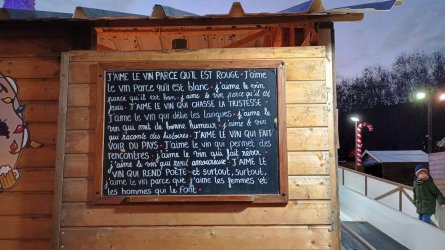 J'AIME LE VIN PARCE QU'IL EST ROUGE. J'aime
le VIN PARCE QU'IL EST BLANC. j'aime le vin
parce qu'il est bon. j'aime le vin parce qu'il est
frais. J'AIME LE VIN QUI CHASSE LA TRISTESSE.
J'aime le vin qui délie les langues. j'aime le
vin qui met de bonne humeur. j'aime le vin
qui raconte des histoires. J'AIME LE VIN QUI FAIT
VOIR DU PAYS. J'aime le vin qui permet des
rencontres. j'aime le vin qui fait rêver.
j'aime le vin qui rend amoureux. J'AIME LE
VIN QUI REND POÈTE et surtout, surtout,
j'aime le vin parce que j'aime les femmes et
les hommes qui le font.